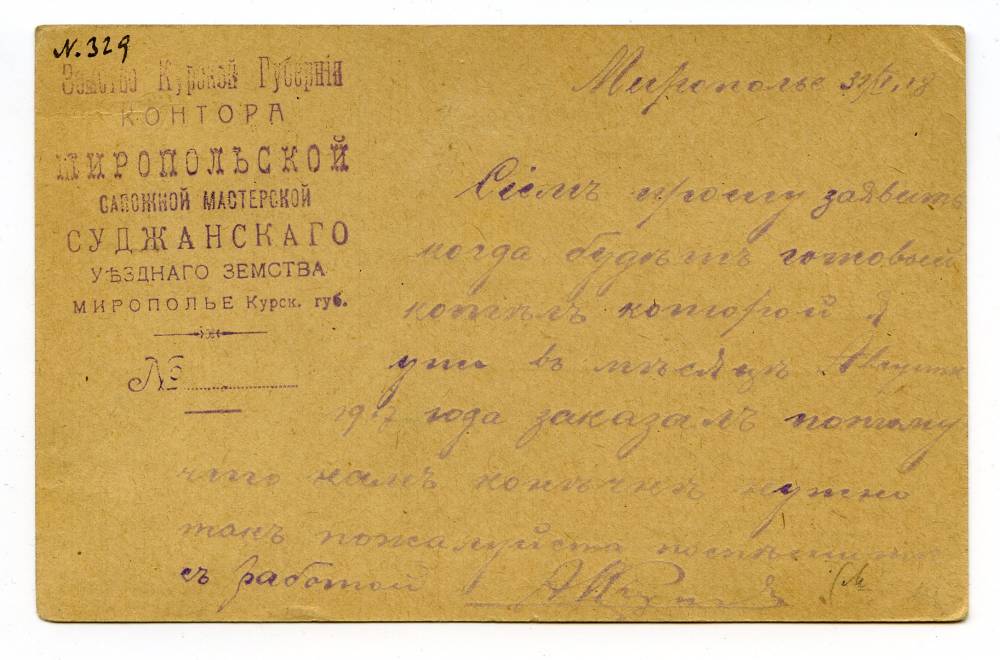 N. 329
Земство Курской Губерніи
КОНТОРА
МИРОПОЛЬСКОЙ
САПОЖНОЙ МАСТЕРСКОЙ
СУДЖАНСКАГО
УѢЗДНАГО ЗЕМСТВА
МИРОПОЛЬЕ Курск. губ.
№
Мирополье
Сіемъ прошу заявить
когда будетъ готовый
котелъ которой я
уже въ мѣсяцѣ Августѣ
1917 года заказалъ потому
что намъ конѣчнѣ нужно
такъ пожалуйста
съ работой